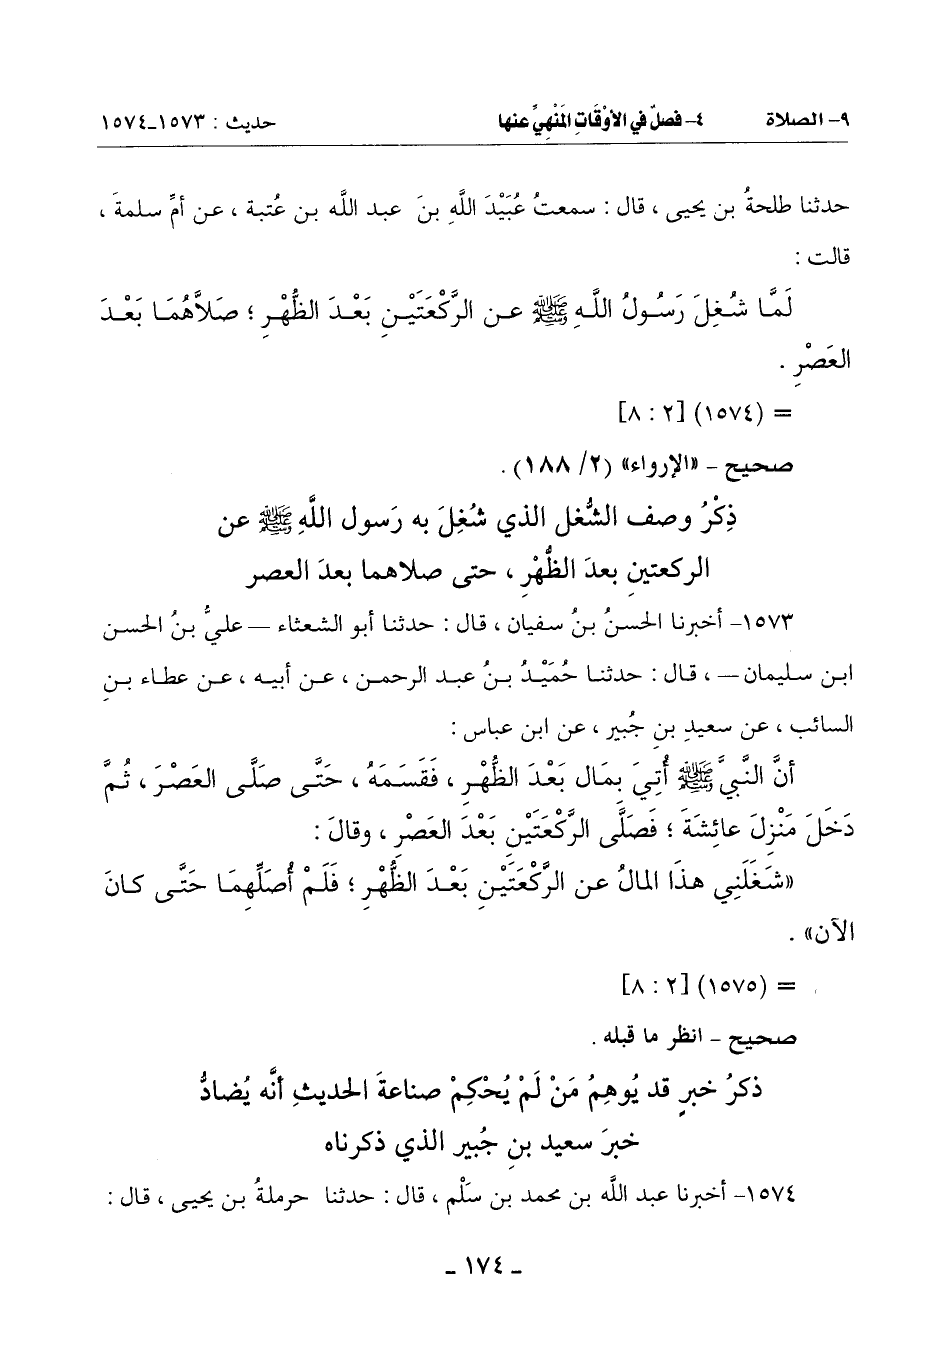 ٩- الصلاة ٤- فصلٌ في الأوْقَاتِ المَنْهِيِّ عنها حديث : ١٥٧٣-١٥٧٤
حدثنا طلحةُ بن يحيى ، قال : سمعتُ عُبَيْدَ اللَّهِ بنَ عبد اللَّه بن عُتبة ، عن أمِّ سلمةَ ،
قالت :
لَمَّا شُغِلَ رَسُولُ اللَّهِ ﷺ عن الرَّكْعَتَيْنِ بَعْدَ الظُّهْرِ ؛ صَلاَّهُمَا بَعْدَ
العَصْرِ .
= (١٥٧٤) [٢ : ٨]
صحيح - «الإرواء» (٢/ ١٨٨) .
ذِكْرُ وصف الشُّغل الذي شُغِلَ به رَسول اللَّهِ ﷺ عن
الركعتينِ بعدَ الظُّهْرِ ، حتى صلاهما بعدَ العصر
١٥٧٣- أخبرنا الحسنُ بنُ سفيان ، قال : حدثنا أبو الشعثاء – عليُّ بنُ الحسن
ابن سليمان – ، قال : حدثنا حُمَيْدُ بنُ عبد الرحمن ، عن أبيه ، عن عطاء بنِ
السائب ، عن سعيدِ بنِ جُبير ، عن ابن عباس :
أنَّ النَّبيَّ ﷺ أُتِيَ بِمَالٍ بَعْدَ الظُّهْرِ ، فَقَسَمَهُ ، حَتَّى صَلَّى العَصْرَ ، ثُمَّ
دَخَلَ مَنْزِلَ عائِشَةَ ؛ فَصَلَّى الرَّكْعَتَيْنِ بَعْدَ العَصْرِ ، وقالَ :
«شَغَلَنِي هذَا المالُ عن الرَّكْعَتَيْنِ بَعْدَ الظُّهْرِ ؛ فَلَمْ أُصَلِّهِمَا حَتَّى كانَ
الآن» .
= (١٥٧٥) [٢ : ٨]
صحيح - انظر ما قبله .
ذكرُ خبرٍ قد يُوهِمُ مَنْ لَمْ يُحْكِمْ صناعةَ الحديثِ أنَّه يُضادُّ
خبرَ سعيد بنِ جُبير الذي ذكرناه
١٥٧٤- أخبرنا عبد اللَّه بن محمد بن سَلْم ، قال : حدثنا حرملةُ بن يحيى ، قال :
- ١٧٤ -